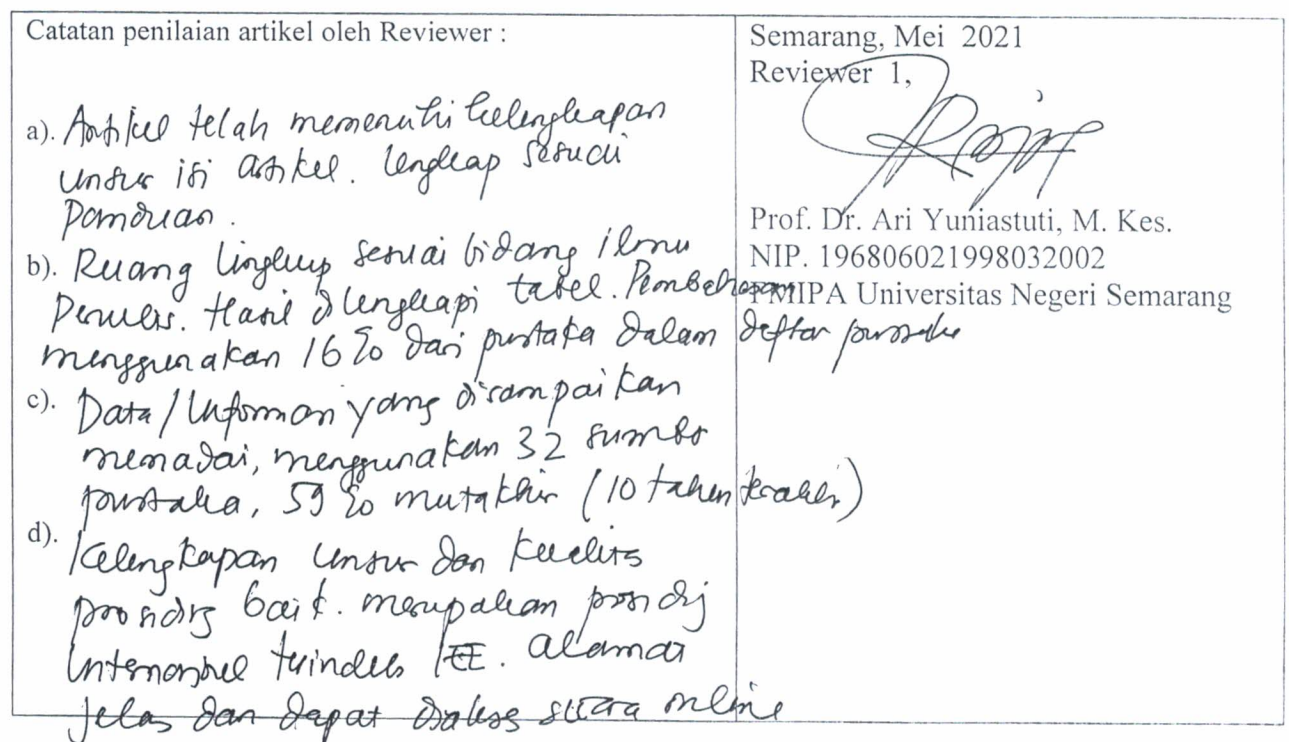 Catatan penilaian artikel oleh Reviewer :
a). Artikel telah memenuhi kelengkapan
unsur isi artikel. lengkap sesuai
panduan.
b). Ruang lingkup sesuai bidang ilmu
Penulis. Hasil dilengkapi tabel. Pembahasan
menggunakan 16 % dari pustaka dalam daftar pustaka
c). Data/Informasi yang disampaikan
memadai, menggunakan 32 sumber
pustaka, 59 % mutakhir (10 tahun terakhir)
d). Kelengkapan unsur dan kualitas
prosiding baik. merupakan prosiding
Internasional terindeks. alamat
jelas dan dapat diakses secara online
Semarang, Mei 2021
Reviewer 1,
Prof. Dr. Ari Yuniastuti, M. Kes.
NIP. 196806021998032002
FMIPA Universitas Negeri Semarang